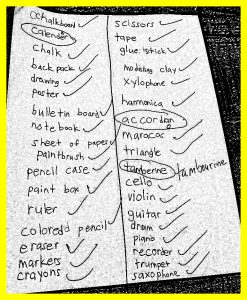 chalkboard
calender
chalk
backpack
drawing
poster
bulletin board
notebook
sheet of paper
paintbrush
pencil case
paint box
ruler
colored pencil
eraser
markers
crayons
scissors
tape
glue stick
modeling clay
xylophone
harmonica
accordan
maracas
triangle
tamberine tambourine
cello
violin
guitar
drum
piano
recorder
trumpet
saxophone